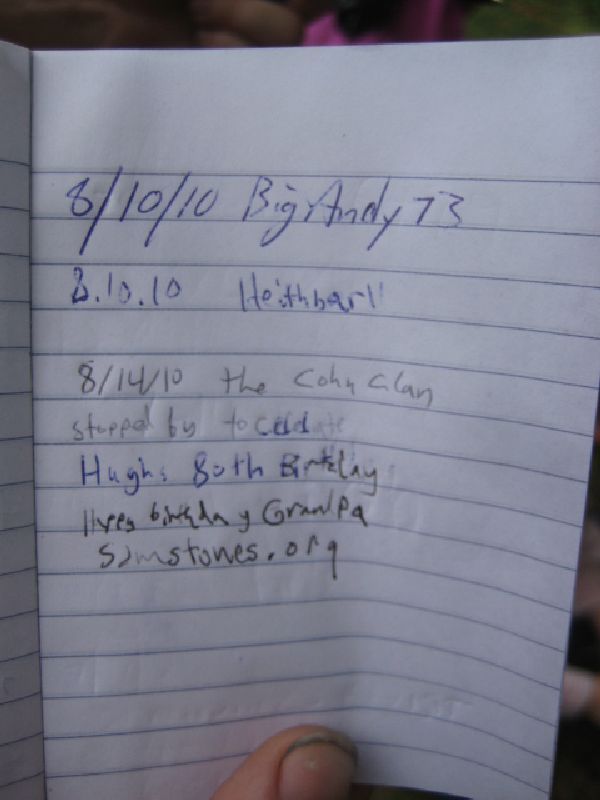 8/10/10 Big Andy 73
8.10.10
8/14/10 the Cohn Clan
stopped by to
Hugh's 80th Birthday
birthday Grandpa
Simstones.org